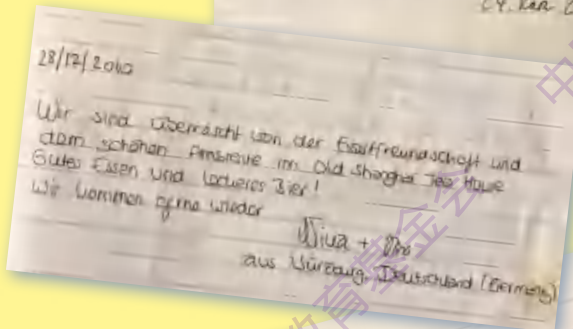 28/12/2010
Wir sind überrascht von der Gastfreundschaft und
dem schönen Ambiente im Old Shanghai Tea House
Gutes Essen und leckeres Bier!
Wir kommen gerne wieder
+
aus Würzburg, Deutschland (Germany)
育基金会
中